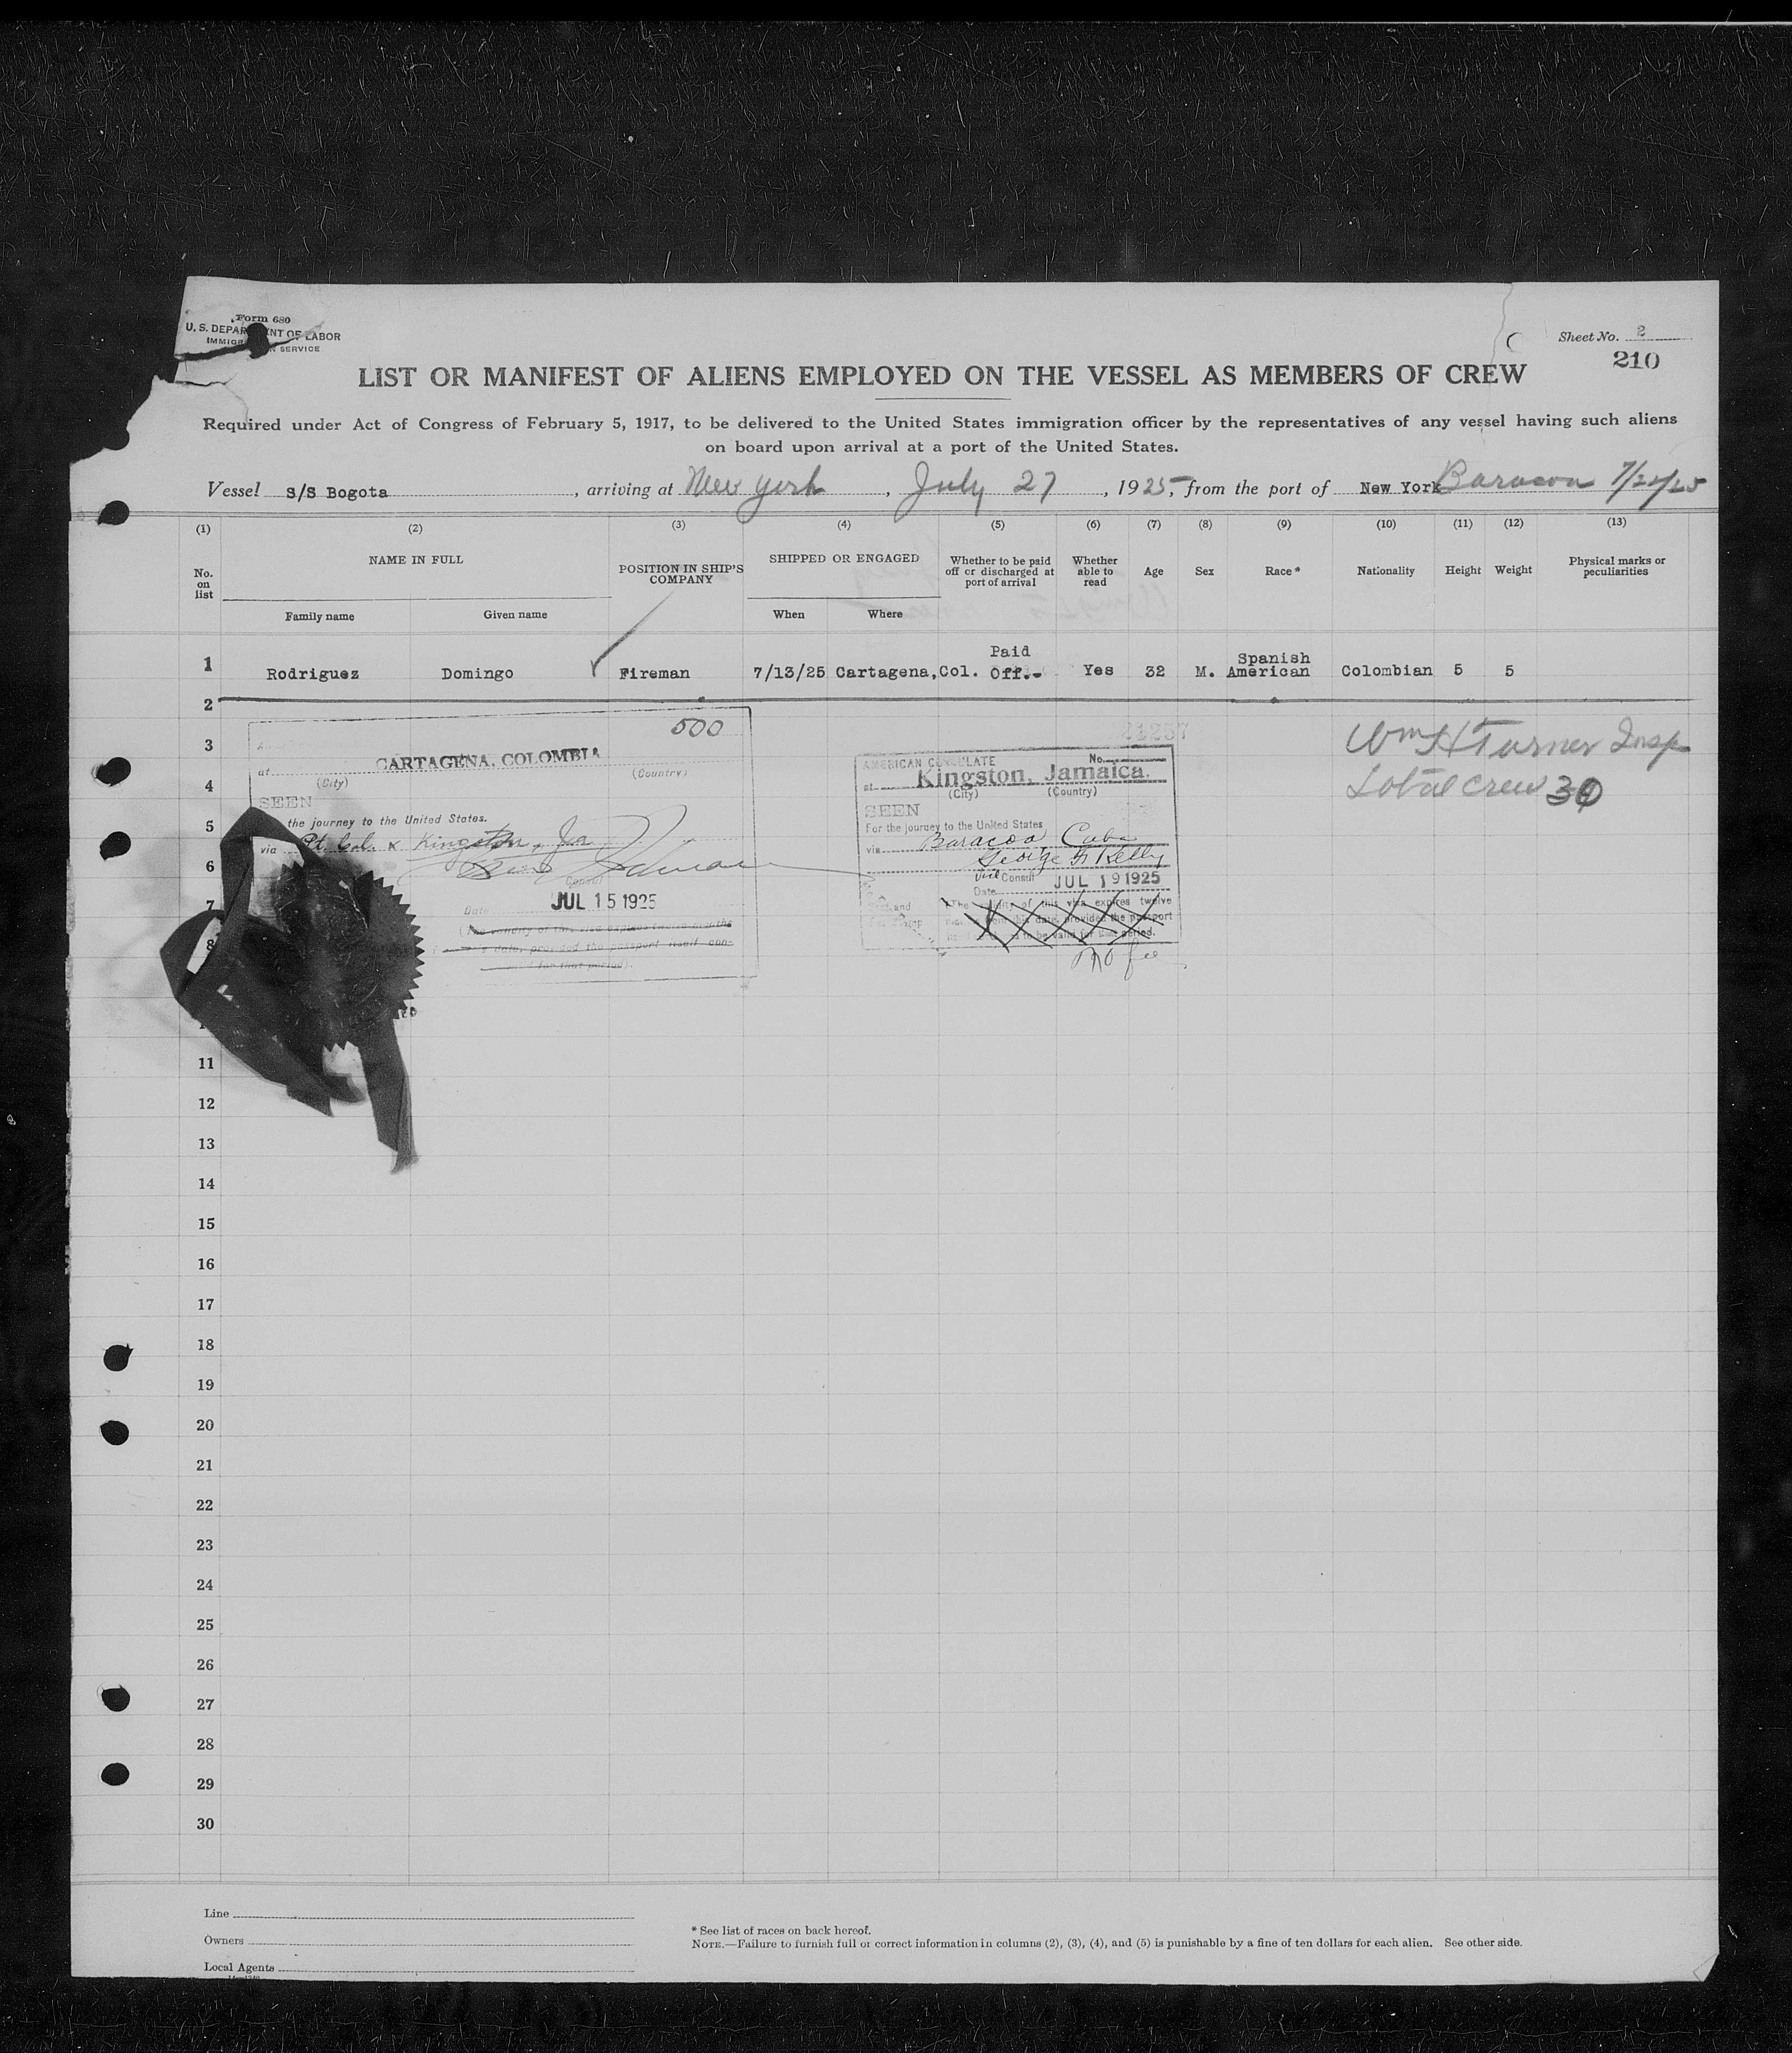 Form 680
U. S. DEPARTMENT OF LABOR
IMMIGRATION SERVICE
Sheet No. 2
210
LIST OR MANIFEST OF ALIENS EMPLOYED ON THE VESSEL AS MEMBERS OF CREW
Required under Act of Congress of February 5, 1917, to be delivered to the United States immigration officer by the representatives of any vessel having such aliens
on board upon arrival at a port of the United States.
Vessel S/S Bogota, arriving at New York, July 27, 1925, from the port of New York Baracoa 7/22/25
(1) (2) (3) (4) (5) (6) (7) (8) (9) (10) (11) (12) (13)
No. on list NAME IN FULL POSITION IN SHIP'S COMPANY SHIPPED OR ENGAGED Whether to be paid off or discharged at port of arrival Whether able to read Age Sex Race* Nationality Height Weight Physical marks or peculiarities
Family name Given name When Where
1 Rodriguez Domingo Fireman 7/13/25 Cartagena, Col. Paid Off.- Yes 32 M. Spanish American Colombian 5 5
2
3
4
5
6
7
8
500
CARTAGENA, COLOMBIA
at
(City) (Country)
SEEN
the journey to the United States.
via Pt. Col. x Kingston, Ja
Consul
Date JUL 15 1925
21237
AMERICAN CONSULATE No.
at Kingston, Jamaica.
(City) (Country)
SEEN
For the journey to the United States
via Baracoa, Cuba
George F. Kelly
Vice Consul
Date JUL 19 1925
The validity of this visa expires twelve
months from this date, provided the passport
to be valid for that period.
No fee
Wm H Turner Insp
Total crew 30
11
12
13
14
15
16
17
18
19
20
21
22
23
24
25
26
27
28
29
30
Line
Owners
Local Agents
* See list of races on back hereof.
NOTE.—Failure to furnish full or correct information in columns (2), (3), (4), and (5) is punishable by a fine of ten dollars for each alien. See other side.